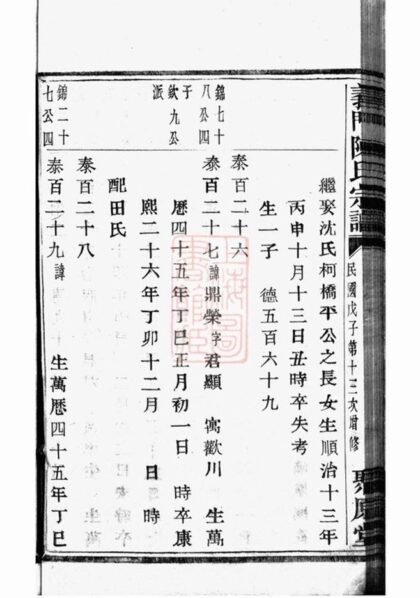 義門陳氏宗譜
民國戊子第十三次增修
聚原堂
繼娶沈氏柯橋平公之長女生順治十三年
丙申十月十三日丑時卒失考
生一子　德五百六十九
泰百二十六
錦七十
八公四
子
欽九公
派
泰百二十七諱鼎榮字君顯　寓歡川　生萬
曆四十五年丁巳正月初一日　時卒康
熙二十六年丁卯十二月　日時
配田氏
泰百二十八
錦二十
七公四
泰百二十九諱　　生萬曆四十五年丁巳